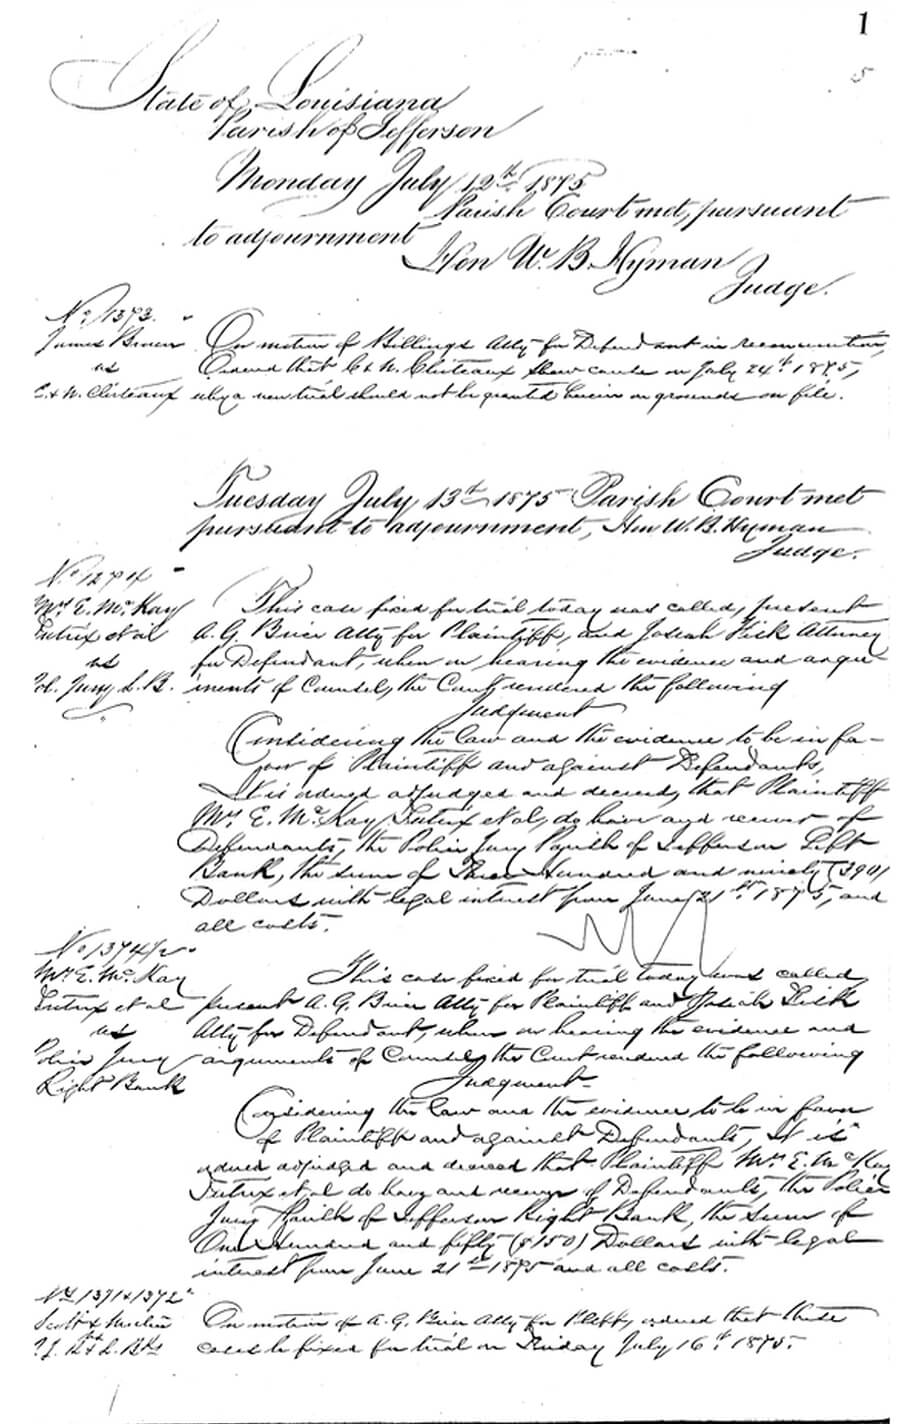 1
5
State of Louisiana
Parish of Jefferson
Monday July 12th 1875
Parish Court met, pursuant
to adjournment
Hon W. B. Hyman
Judge.
No. 1373.
James Brown
vs
C. & N. Cliteaux
On motion of Billings Atty for Defendant in reconvention,
Ordered that C & N. Cliteaux Show cause on July 24th 1875,
why a new trial should not be granted herein on grounds on file.
Tuesday July 13th 1875 Parish Court met
pursuant to adjournment, Hon W. B. Hyman
Judge.
No. 1274
Mrs E. McKay
Tutrix et al
vs
Pol. Jury L. B.
This case fixed for trial today was called, present
A. G. Brice Atty for Plaintiff, and Josiah Fisk Attorney
for Defendant, when on hearing the evidence and argu-
ments of Counsel, the Court rendered the following
Judgment
Considering the law and the evidence to be in fa-
vor of Plaintiff and against Defendants,
It is ordered adjudged and decreed, that Plaintiff
Mrs E. McKay Tutrix et als, do have and recover of
Defendants, the Police Jury Parish of Jefferson Left
Bank, the sum of Three Hundred and ninety (390)
Dollars with legal interest from June 21st 1875, and
all costs.
No. 1374 1/2
Mrs E. McKay
Tutrix et al
vs
Police Jury
Right Bank
This case fixed for trial today was called,
present A. G. Brice Atty for Plaintiff and Josiah Fisk
Atty for Defendant, when on hearing the evidence and
arguments of Counsel, the Court rendered the following
Judgment
Considering the law and the evidence to be in favor
of Plaintiff and against Defendants, It is
ordered adjudged and decreed that Plaintiff Mrs E. McKay
Tutrix et al do have and recover of Defendants, the Police
Jury Parish of Jefferson Right Bank, the sum of
One Hundred and fifty ($150) Dollars with legal
interest from June 21st 1875 and all costs.
Nos 1371 & 1372
Scott &
vs
On motion of A. G. Brice Atty for Plffs, ordered that these
cases be fixed for trial on Friday July 16th 1875.